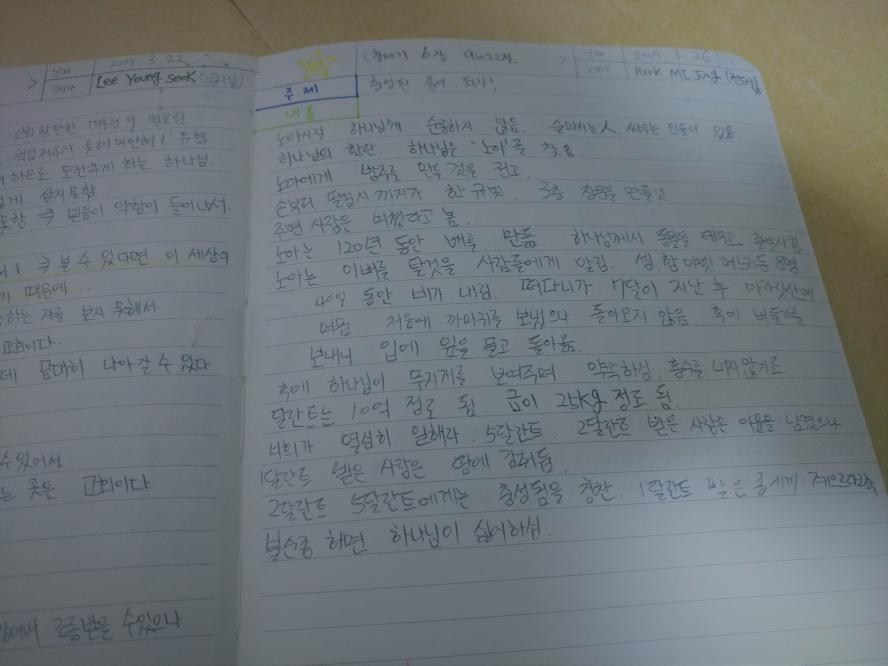 2017. 3. 22.
Lee Young Seok
책임져주지
하므로 도전하게 하는 하나님
살지 못함
믿음이 약함이 들어나서.
볼 수 있다면 이 세상의
때문에...
하는 자를 보지 못해서
교회이다.
담대히 나아갈 수 있다
수 있어서
는 곳은 교회이다
수 있으나
(창세기 6장 9~22절.
날짜
2017. 3. 26.
Park Mi Jung
주제
충성된 종이 되자!
내용
노아시절 하나님께 순종하지 않음. 술마시는人, 싸우는 인들이 있음.
하나님의 한탄. 하나님은 '노아'를 찾음.
노아에게 방주를 만들 것을 권고.
손부터 팔꿈치까지가 한 규빗. 3층 창문을 만들었
주변 사람은 미쳤다고 봄.
노아는 120년 동안 배를 만듦. 하나님께서 동물을 태우고
노아는 이 배를 탈것을 사람들에게 알림. 셈 함 야벳 며느리등 8명
40일 동안 비가 내림. 떠다니가 7달이 지난 후 아라랏산에
머뭄. 처음에 까마귀를 보냈으나 돌아오지 않음. 후에 비둘기를
보내니 입에 잎을 물고 돌아옴.
후에 하나님이 무지개를 보여주며 약속하심. 홍수를 내지 않기로
달란트는 10억 정도 됨. 금이 25kg 정도 됨.
너희가 열심히 일해라. 5달란트. 2달란트 받은 사람은 이윤을 남겼으나
1달란트 받은 사람은 땅에 감춰둠.
2달란트 5달란트에게는 충성됨을 칭찬. 1달란트 받은 종에게
불순종 하면 하나님이 싫어하셔.